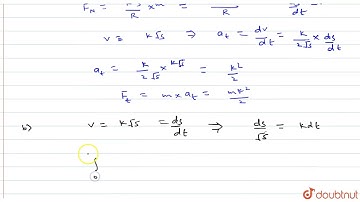 Fₙ = × m =
R R dt
v = k√s ⇒ aₜ = dv/dt = k/2√s × ds/dt
aₜ = k/2√s × k√s = k²/2
Fₜ = m × aₜ = mk²/2
b) v = k√s = ds/dt ⇒ ds/√s = kdt
∫
0
doubtnut